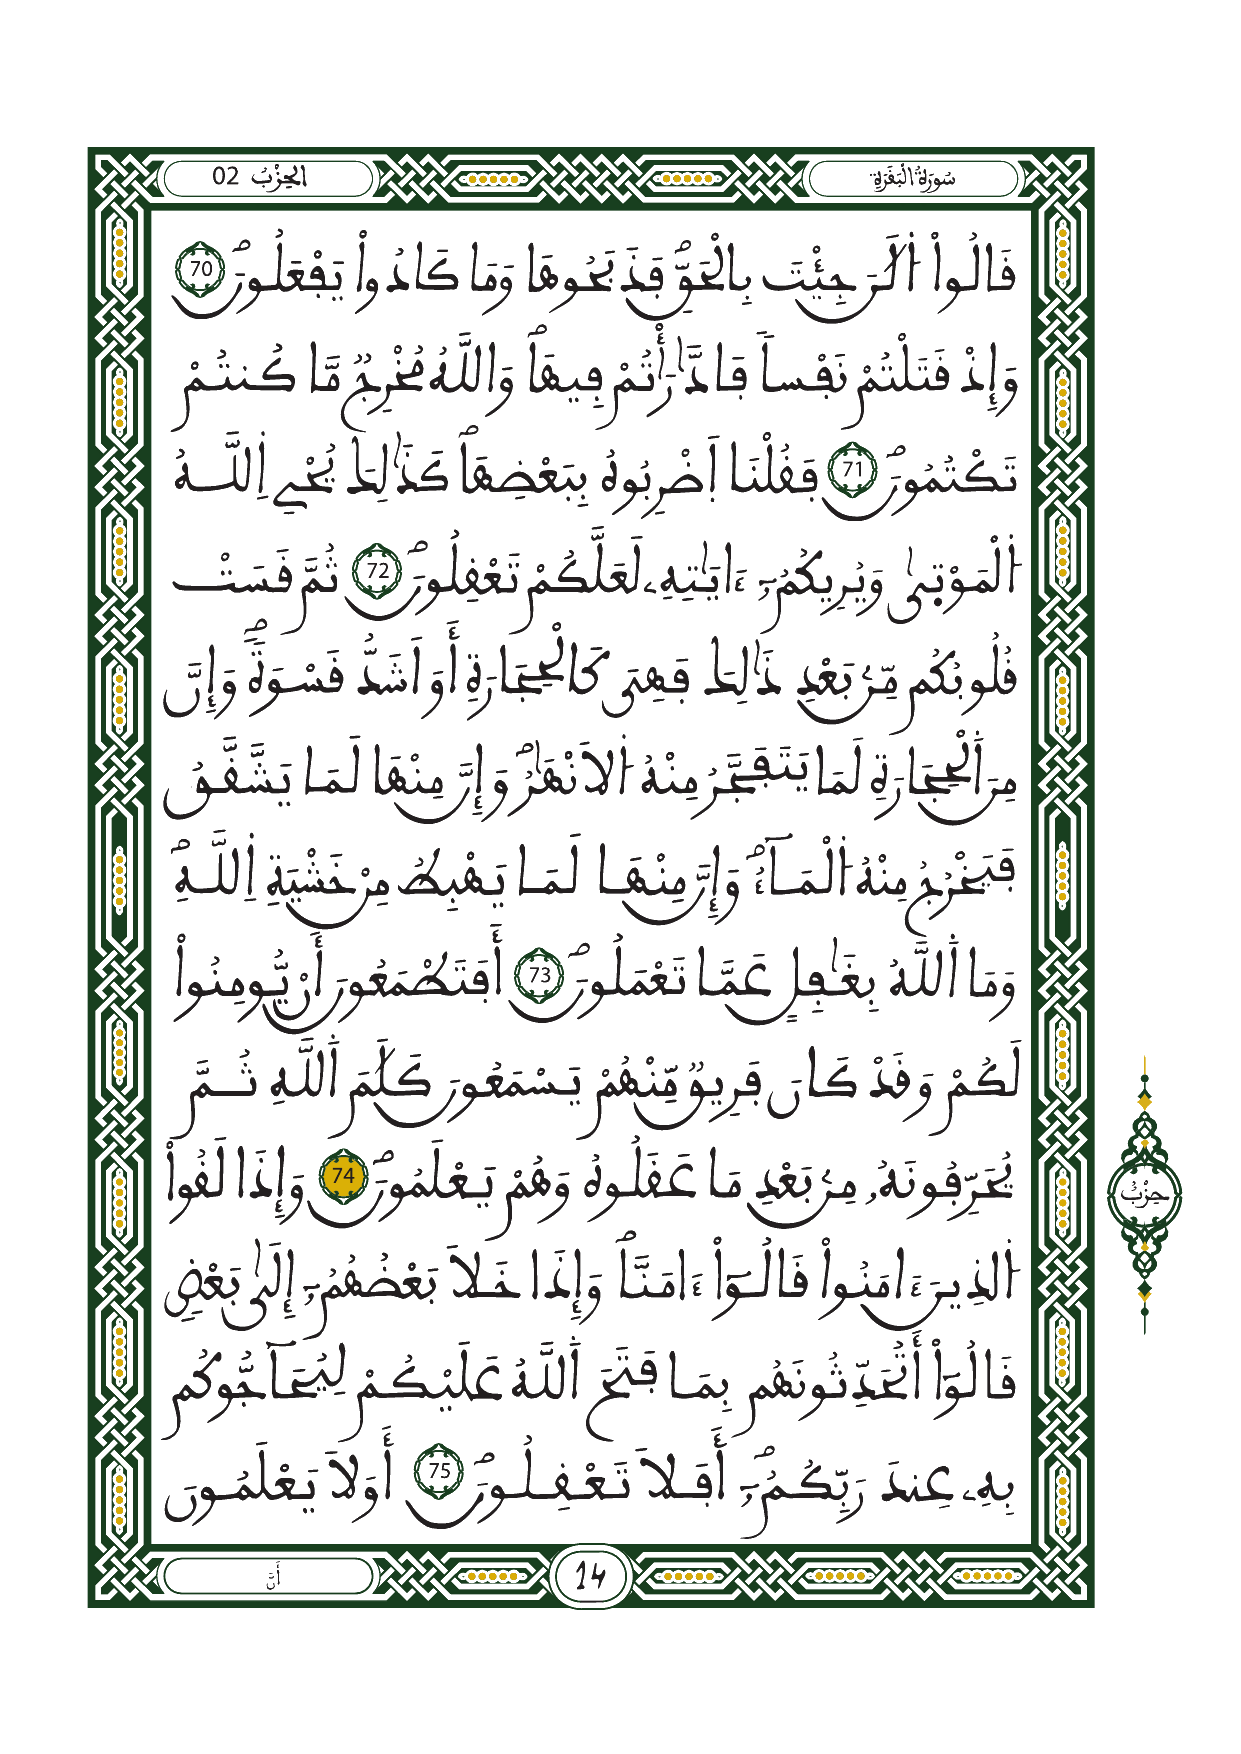 سُورَةُ الْبَقَرَةِ
الحِزْبُ 02
قَالُواْ اُ۬لَٰنَ جِئْتَ بِالْحَقِّۖ فَذَبَحُوهَا وَمَا كَادُواْ يَفْعَلُونَۖ 70
وَإِذْ قَتَلْتُمْ نَفْساٗ فَادَّٰرَٰٔتُمْ فِيهَاۖ وَاللَّهُ مُخْرِجٞ مَّا كُنتُمْ
تَكْتُمُونَۖ 71 فَقُلْنَا اَضْرِبُوهُ بِبَعْضِهَاۖ كَذَٰلِكَ يُحْيِ اِ۬للَّهُ
اُ۬لْمَوْتۭيٰ وَيُرِيكُمُۥٓ ءَايَٰتِهِۦ لَعَلَّكُمْ تَعْقِلُونَۖ 72 ثُمَّ قَسَتْ
قُلُوبُكُم مِّنۢ بَعْدِ ذَٰلِكَ فَهِيَ كَالْحِجَارَةِ أَوَ اَشَدُّ قَسْوَةٗۖ وَإِنَّ
مِنَ اَ۬لْحِجَارَةِ لَمَا يَتَفَجَّرُ مِنْهُ اُ۬لَانْهَٰرُۖ وَإِنَّ مِنْهَا لَمَا يَشَّقَّقُ
فَيَخْرُجُ مِنْهُ اُ۬لْمَآءُۖ وَإِنَّ مِنْهَا لَمَا يَهْبِطُ مِنْ خَشْيَةِ اِ۬للَّهِۖ
وَمَا اَ۬للَّهُ بِغَٰفِلٍ عَمَّا تَعْمَلُونَۖ 73 أَفَتَطْمَعُونَ أَنْ يُّومِنُواْ
لَكُمْ وَقَدْ كَانَ فَرِيقٞ مِّنْهُمْ يَسْمَعُونَ كَلَٰمَ اَ۬للَّهِ ثُمَّ
يُحَرِّفُونَهُۥ مِنۢ بَعْدِ مَا عَقَلُوهُ وَهُمْ يَعْلَمُونَۖ 74 وَإِذَا لَقُواْ
اُ۬لذِينَ ءَامَنُواْ قَالُوٓاْ ءَامَنَّاۖ وَإِذَا خَلَا بَعْضُهُمُۥٓ إِلَىٰ بَعْضٖ
قَالُوٓاْ أَتُحَدِّثُونَهُم بِمَا فَتَحَ اَ۬للَّهُ عَلَيْكُمْ لِيُحَآجُّوكُم
بِهِۦ عِندَ رَبِّكُمُۥٓۖ أَفَلَا تَعْقِلُونَۖ 75 أَوَلَا يَعْلَمُونَ
حِزْبٌ
أَنَّ
14